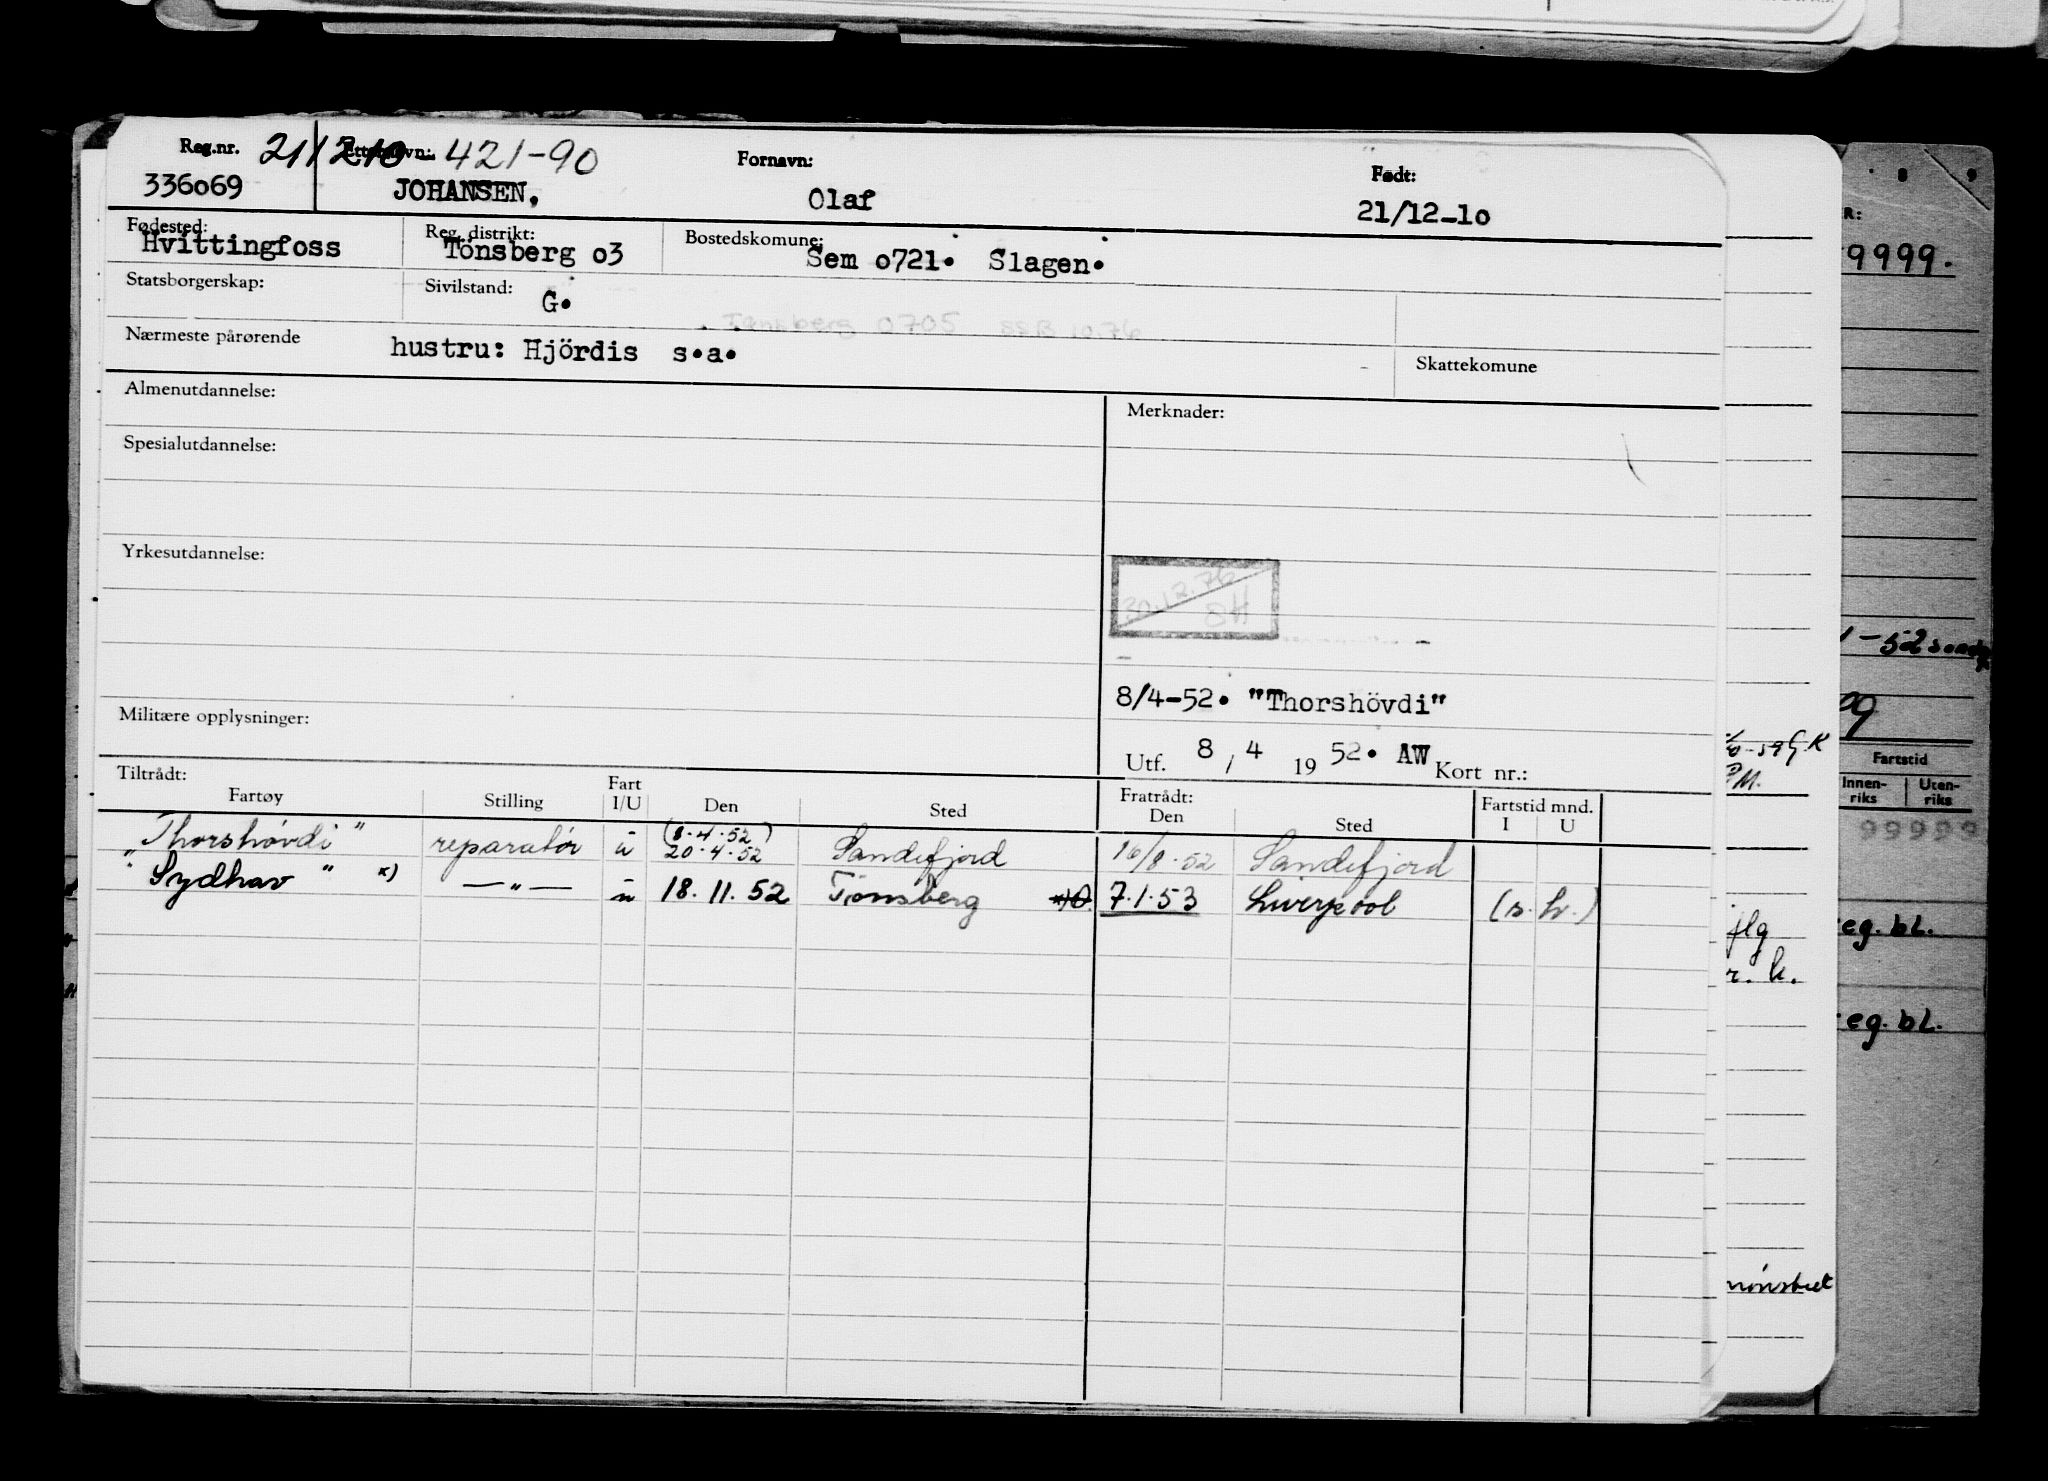 Reg.nr. 21/210-421-90 Etternavn: Fornavn: Født:
336o69 JOHANSEN. Olaf 21/12-1o
Fødested: Reg. distrikt: Bostedskomune:
Hvittingfoss Tönsberg o3 Sem o721. Slagen.
Statsborgerskap: Sivilstand: G.
Tønsberg 0705 SSB 10.76
Nærmeste pårørende hustru: Hjördis s.a. Skattekomune
Almenutdannelse: Merknader:
Spesialutdannelse:
Yrkesutdannelse:
30.12.76
8/4-52. "Thorshövdi"
Militære opplysninger:
Utf. 8 / 4 19 52. AW Kort nr.:
Tiltrådt: Fratrådt:
Fartøy Stilling Fart I/U Den Sted Den Sted Fartstid mnd. I U
"Thorshövdi" reparatör u (8.4.52) 20.4.52 Sandefjord 16/8.52 Sandefjord
"Sydhav" x) —"— u 18.11.52 Tönsberg 7.1.53 Liverpool (s.h.)
R:
9999.
-52
Fartstid
Innen-riks Uten-riks
99999
flg
r. k.
eg. bl.
eg. bl.
mönstret